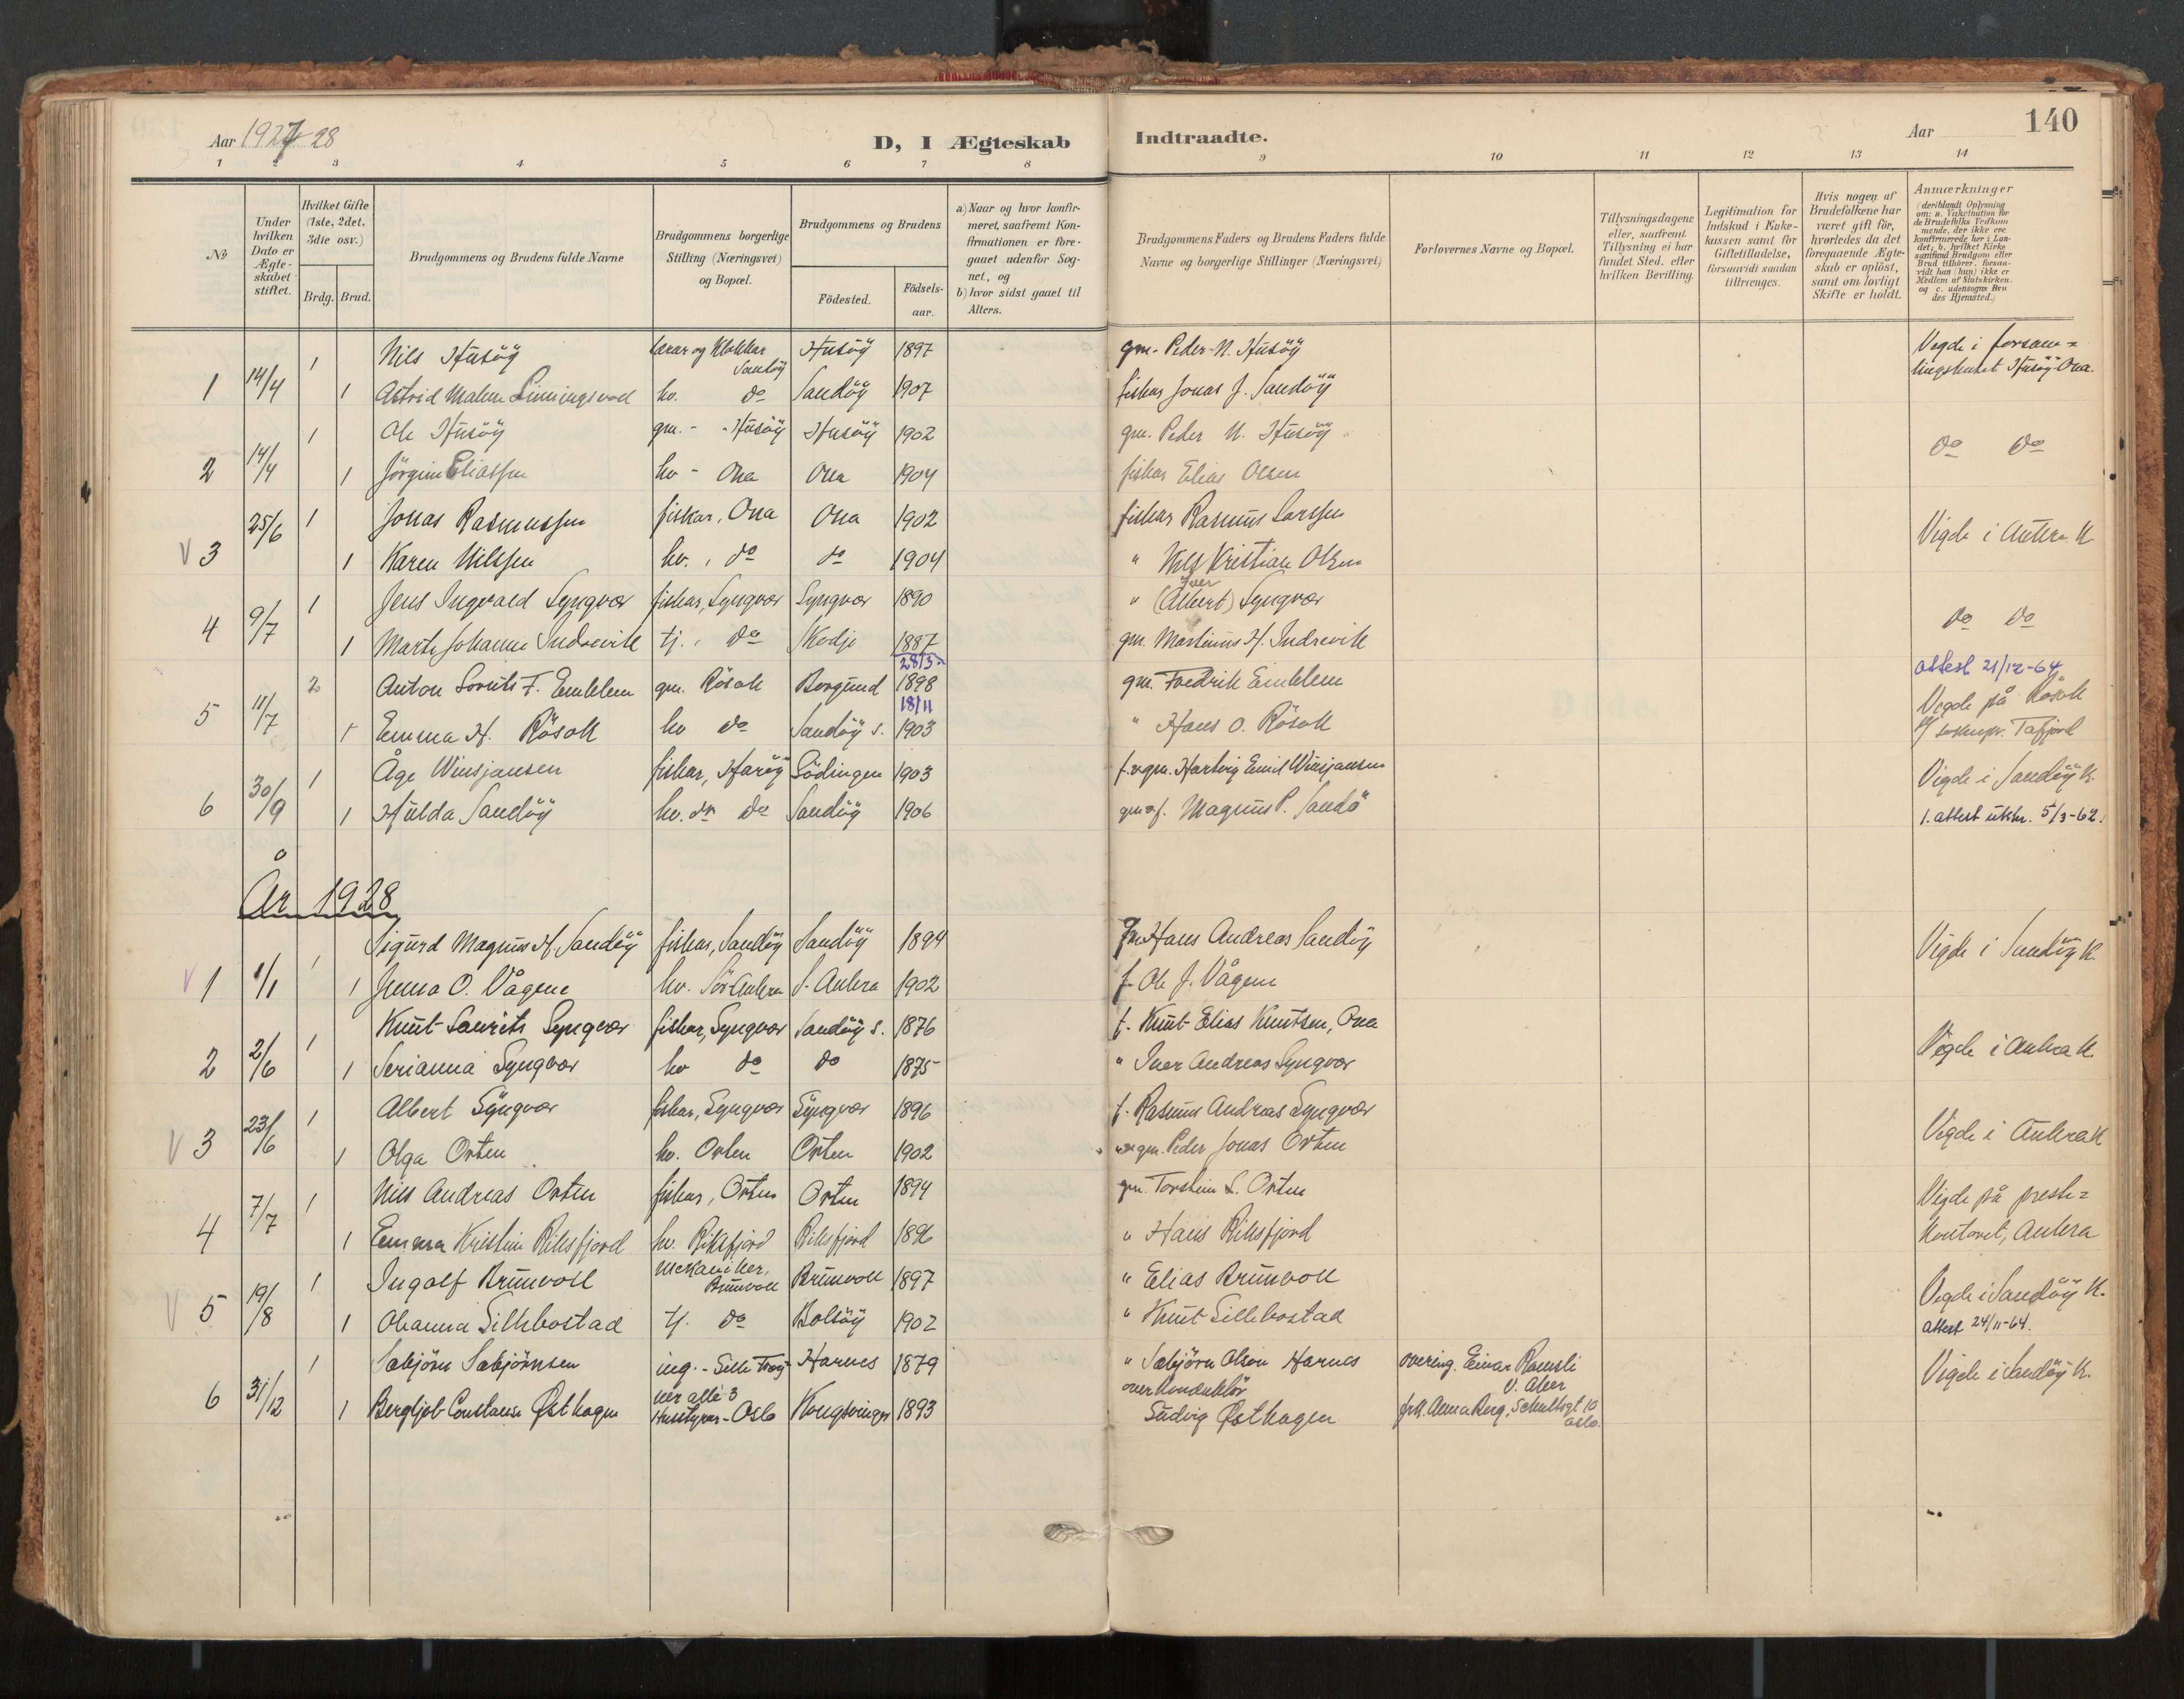 Aar 1927-28
D, I Ægteskab Indtraadte.
Aar
140
1 2 3 4 5 6 7 8 9 10 11 12 13 14
No
Under hvilken Dato er Ægteskabet stiftet.
Hvilket Gifte (1ste, 2det, 3die osv.)
Brdg. Brud.
Brudgommens og Brudens fulde Navne
Brudgommens borgerlige Stilling (Næringsvei) og Bopæl.
Brudgommens og Brudens
Födested.
Födsels-aar.
a) Naar og hvor konfirmeret, saafremt Konfirmationen er foregaaet udenfor Sognet, og
b) hvor sidst gaaet til Alters.
Brudgommens Faders og Brudens Faders fulde Navne og borgerlige Stillinger (Næringsvei)
Forlovernes Navne og Bopæl.
Tillysningsdagene eller, saafremt Tillysning ei har fundet Sted, efter hvilken Bevilling.
Legitimation for Indskud i Enkekassen samt for Giftetilladelse, forsaavidt saadan tiltrænges.
Hvis nogen af Brudefolkene har været gift för, hvorledes da det foregaaende Ægteskab er oplöst, samt om lovligt Skifte er holdt.
Anmærkninger (deriblandt Oplysning om: a. Vakcination for de Brudefolks Vedkommende, der ikke ere konfirmerede her i Landet; b. hvilket Kirkesamfund Brudgom eller Brud tilhörer, forsaavidt han (hun) ikke er Medlem af Statskirken, og c. udensogns Brudes Hjemsted.)
1 14/4 1 Nils Husöy lærar og Klokkar Sandöy Husöy 1897 gm. Peder N. Husöy Vegde i forsam=
1 Astrid Malene Sinningsvoll hv. do Sandöy 1907 fiskar Jonas J. Sandöy lingshuset Husöy-Ona.
2 14/4 1 Ole Husöy gm. - Husöy Husöy 1902 gm. Peder N. Husöy do do
1 Jörgine Eliassen hv - Ona Ona 1904 fiskar Elias Olsen
V 3 25/6 1 Jonas Rasmussen fiskar, Ona Ona 1902 fiskar Rasmus Larssen Vigde i Aukra K
1 Karen Nilssen hv. , do do 1904 " Nils Kristian Olsen
4 9/7 1 Jens Ingvald Lyngvær fiskar, Lyngvær Lyngvær 1890 " Iver (Albert) Lyngvær do do
1 Marte Johanne Indrevik tj. , do Skodje 1887 gm. Martinus H. Indrevik
5 11/7 2 Anton Lorents F. Emblem gm. Rösok Borgund 28/5- 1898 gm. Fredrik Emblem attest 21/12-64
Vegde på Rösok
1 Emma H. Rösok hv do Sandöy s. 18/11 1903 " Hans O. Rösok Tafjord
6 30/9 1 Åge Winsjansen fiskar, Haröy Lödingen 1903 f. v gm. Hartvig Emil Winsjansen Vigde i Sandöy K.
1 Hulda Sandöy hv. do Sandöy 1906 gm. Magnus P. Sandö 1. attest utskr. 5/3-62.
År 1928
V 1 1/1 1 Sigurd Magnus H. Sandöy fiskar, Sandöy Sandöy 1894 gm Hans Andreas Sandöy Vigde i Sandöy K.
1 Jenna O. Vågene hv. Sör Aukra S. Aukra 1902 f. Ole J. Vågene
2 2/6 1 Knut Laurits Lyngvær fiskar, Lyngvær Sandöy s. 1876 f. Knut Elias Knutsen, Ona Vegde i Aukra K.
1 Serianna Lyngvær hv do do 1875 " Iver Andreas Lyngvær
V 3 23/6 1 Albert Lyngvær fiskar, Lyngvær Lyngvær 1896 f. Rasmus Andreas Lyngvær Vigde i Aukra K
1 Olga Orten hv. Orten Orten 1902 gm. Peder Jonas Orten
4 7/7 1 Nils Andreas Orten fiskar, Orten Orten 1894 gm. Torstein L. Orten Vigde på preste=
1 Emma Kristine Riksfjord hv. Riksfjord Riksfjord 1896 " Hans Riksfjord kontoret, Aukra
V 5 19/8 1 Ingolf Brunvoll Mekaniker, Brunvoll Brunvoll 1897 " Elias Brunvoll Vegde i Sandöy K.
1 Olianna Sillebostad tj. do Bolsöy 1902 " Knut Sillebostad attest 24/11-64.
6 31/12 1 Sæbjörn Sæbjörnsen ing. Harnes 1879 " Sæbjörn Olsen Harnes overing. Einar Ramsli V. Aker Vigde i Sandöy K.
1 Bergljot Constanse Østhagen Oslo Kongsvinger 1893 overkonduktör Ludvig Østhagen frk. Anna Berg, Schultzgt 10 Oslo.